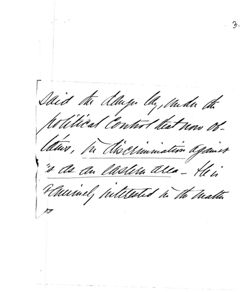 3.
said the danger lay, under the
political control that now ob-
tains, in discrimination against
us as an eastern area – He is
genuinely interested in the matter